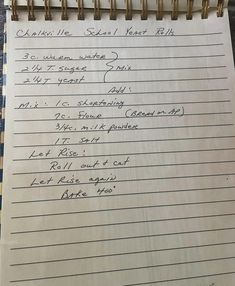 Chalkville School Yeast Rolls
3 c. warm water
2 1/4 T. sugar } Mix
2 1/4 T yeast
Add:
Mix: 1 c. shortening
7 c. flour (Bread or AP)
3/4 c. milk powder
1 T. salt
Let Rise:
Roll out & cut
Let Rise again
Bake 400°